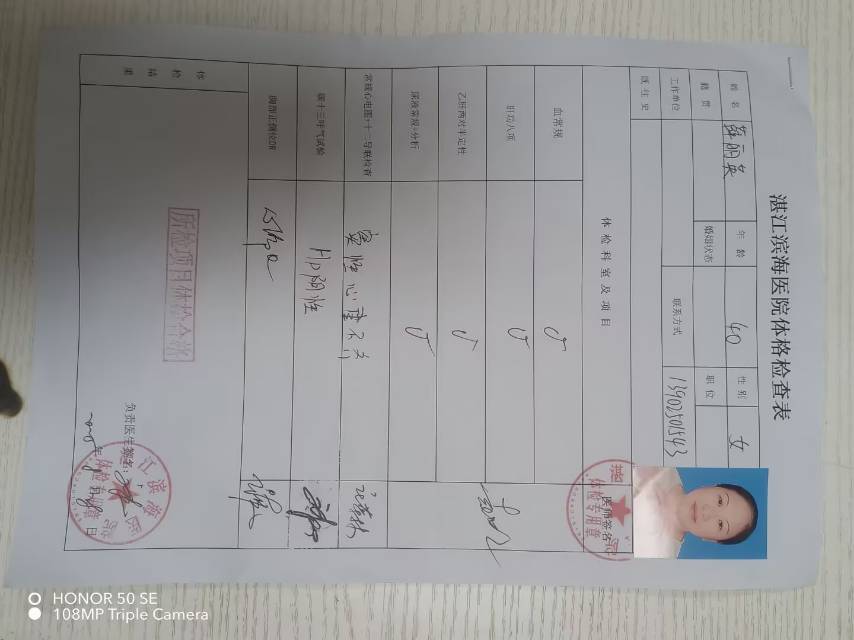 湛江滨海医院体格检查表
姓名 年龄 40 性别 女
籍贯 婚姻状态 职位
工作单位 联系方式 13902501543
既往史
体检科室及项目 医师签名
血常规 √
肝功八项 √
乙肝两对半定性 √
尿液常规+分析 √
常规心电图+十二导联检查 窦性心律不齐
碳十三呼气试验 HP阴性
胸部正侧位DR
体检结果
所检项目体检合格
负责医生签名:
年 月 日
体检专用章
体检专用章
HONOR 50 SE
108MP Triple Camera